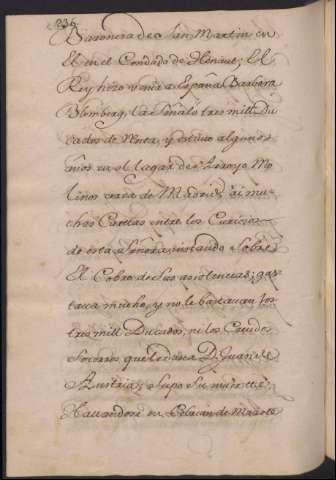 336
Baronera de San Martin en
El en el Condado de Henaut; El
Rey hizo venir a España Barbara
Blomberg, la señaló tres mill Du
cados de Renta, y estuvo algunos
años en el lugar de Arroyo Mo
linos cerca de Madrid, ai mu
chas Cartas entre los Curiosos
de esta Señora, instando sobre
El Cobro de sus asistencias; gas
tava mucho, y no le bastavan los
tres mill Ducados, ni los Grandes
Socorros que le dava Dn Juan de
Austria; Supo su muerte
hallandose en